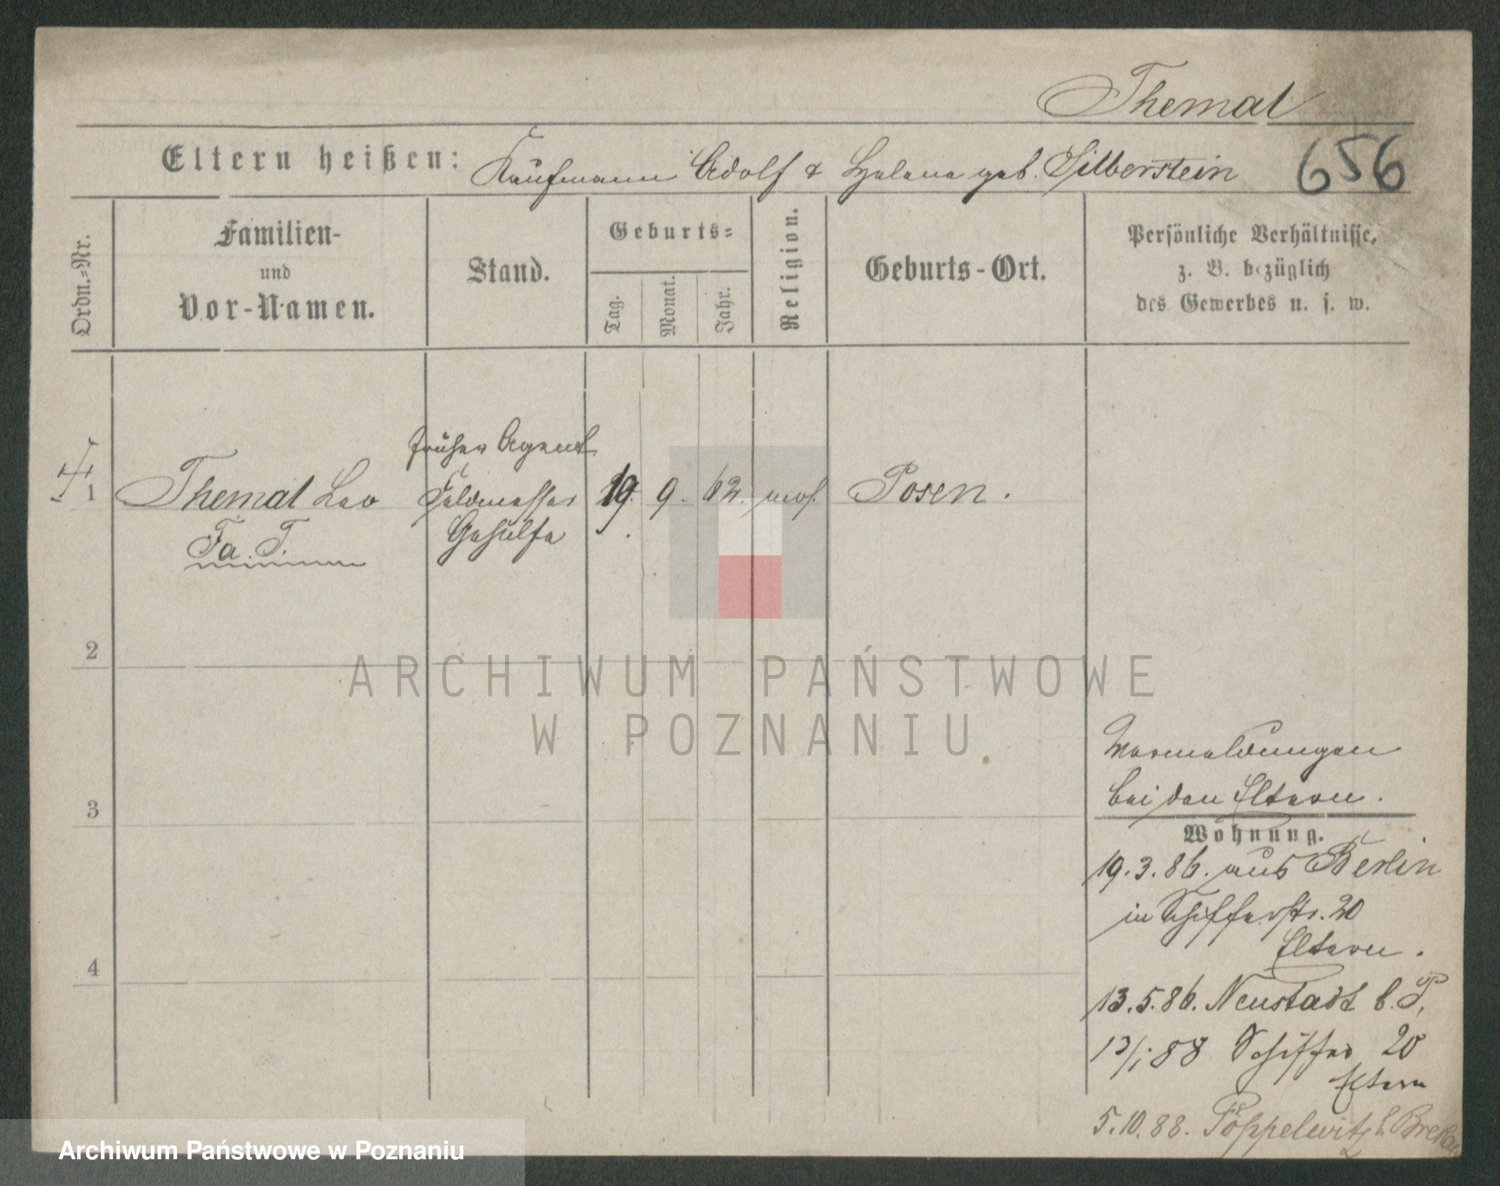 Themal
656
Eltern heißen: Kaufmann Adolf & Helene geb. Silberstein
Ordn.-Nr.
Familien-
und
Vor-Namen.
Stand.
Geburts-
Tag.
Monat.
Jahr.
Religion.
Geburts-Ort.
Persönliche Verhältnisse,
z. B. bezüglich
des Gewerbes u. s. w.
früher Agent
1 Themal Leo Feldmesser 19. 9. 62. mos. Posen.
Gehülfe
Fa. T.
2
ARCHIWUM PAŃSTWOWE
W POZNANIU
3
4
Vormeldungen
bei den Eltern.
Wohnung.
19.3.86. aus Berlin
in Schifferstr. 20
Eltern.
13.5.86. Neustadt b. P.
13/1 88 Schiffer 20
Eltern
5.10.88. Pöppelwitz b. Breslau
Archiwum Państwowe w Poznaniu